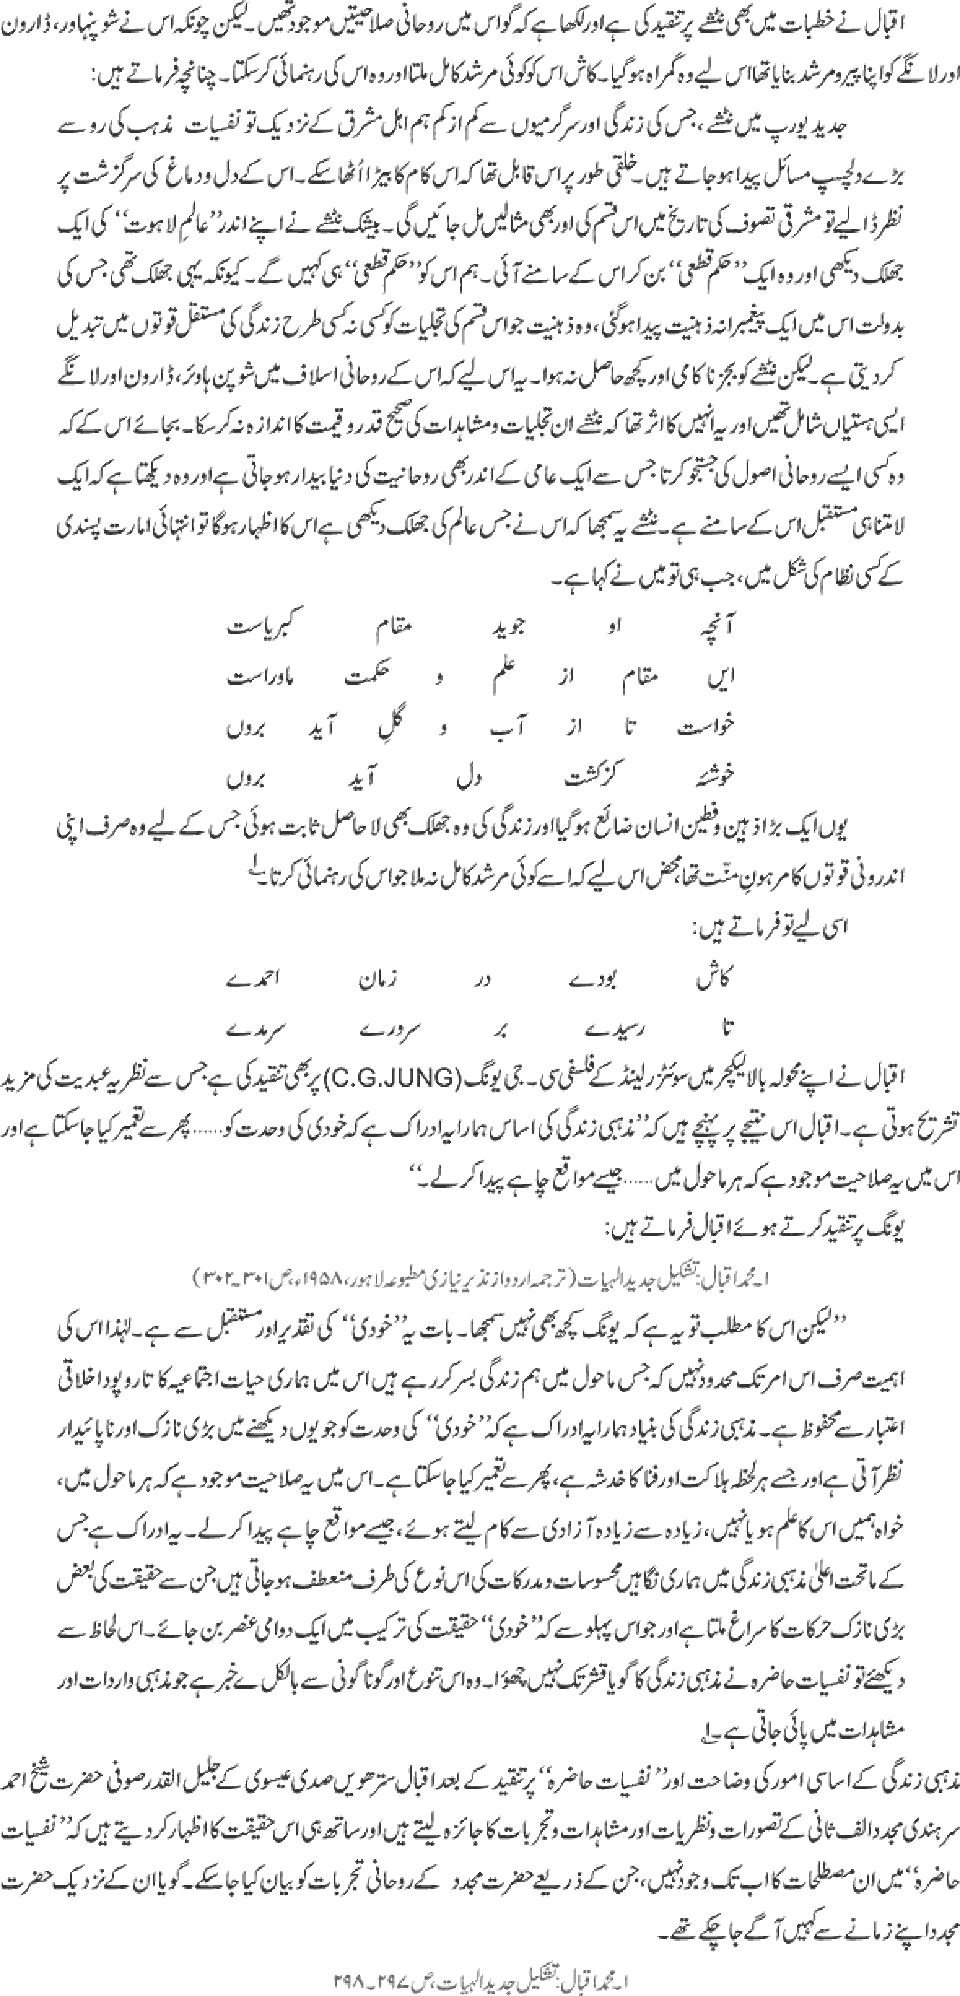 اقبال نے خطبات میں بھی نٹشے پر تنقید کی ہے اور لکھا ہے کہ گو اس میں روحانی صلاحیتیں موجود تھیں۔ لیکن چونکہ اس نے شوپنہاور، ڈارون
اور لانگے کو اپنا پیرو مرشد بنایا تھا اس لیے وہ گمراہ ہو گیا۔ کاش اس کو کوئی مرشد کامل ملتا اور وہ اس کی رہنمائی کرسکتا۔ چنانچہ فرماتے ہیں:
جدید یورپ میں نٹشے، جس کی زندگی اور سرگرمیوں سے کم از کم ہم اہل مشرق کے نزدیک تو نفسیات مذہب کی رو سے
بڑے دلچسپ مسائل پیدا ہو جاتے ہیں۔ خلقی طور پر اس قابل تھا کہ اس کام کا بیڑا اُٹھا سکے۔ اس کے دل و دماغ کی سرگزشت پر
نظر ڈالیے تو مشرقی تصوف کی تاریخ میں اس قسم کی اور بھی مثالیں مل جائیں گی۔ بیشک نٹشے نے اپنے اندر ’’عالمِ لاہوت‘‘ کی ایک
جھلک دیکھی اور وہ ایک ’’حکم قطعی‘‘ بن کر اس کے سامنے آئی۔ ہم اس کو ’’حکم قطعی‘‘ ہی کہیں گے۔ کیونکہ یہی جھلک تھی جس کی
بدولت اس میں ایک پیغمبرانہ ذہنیت پیدا ہو گئی، وہ ذہنیت جو اس قسم کی تجلیات کو کسی نہ کسی طرح زندگی کی مستقل قوتوں میں تبدیل
کر دیتی ہے۔ لیکن نٹشے کو بجز ناکامی اور کچھ حاصل نہ ہوا۔ یہ اس لیے کہ اس کے روحانی اسلاف میں شوپن ہاوئر، ڈارون اور لانگے
ایسی ہستیاں شامل تھیں اور یہ انہیں کا اثر تھا کہ نٹشے ان تجلیات و مشاہدات کی صحیح قدر و قیمت کا اندازہ نہ کر سکا۔ بجائے اس کے کہ
وہ کسی ایسے روحانی اصول کی جستجو کرتا جس سے ایک عامی کے اندر بھی روحانیت کی دنیا بیدار ہو جاتی ہے اور وہ دیکھتا ہے کہ ایک
لامتناہی مستقبل اس کے سامنے ہے۔ نٹشے یہ سمجھا کہ اس نے جس عالم کی جھلک دیکھی ہے اس کا اظہار ہو گا تو انتہائی امارت پسندی
کے کسی نظام کی شکل میں، جب ہی تو میں نے کہا ہے۔
آنچہ او جوید مقام کبریاست
ایں مقام از علم و حکمت ماوراست
خواست تا از آب و گلِ آید بروں
خوشۂ کز کشت دل آید بروں
یوں ایک بڑا ذہین و فطین انسان ضائع ہو گیا اور زندگی کی وہ جھلک بھی لاحاصل ثابت ہوئی جس کے لیے وہ صرف اپنی
اندرونی قوتوں کا مرہونِ منّت تھا، محض اس لیے کہ اسے کوئی مرشد کامل نہ ملا جو اس کی رہنمائی کرتا۔۱
اسی لیے تو فرماتے ہیں:
کاش بودے در زمان احمدے
تا رسیدے بر سرورے سرمدے
اقبال نے اپنے محولہ بالا لیکچر میں سوئٹزرلینڈ کے فلسفی سی۔ جی یونگ (C.G.JUNG) پر بھی تنقید کی ہے جس سے نظریہ عبدیت کی مزید
تشریح ہوتی ہے۔ اقبال اس نتیجے پر پہنچے ہیں کہ ’’مذہبی زندگی کی اساس ہمارا یہ ادراک ہے کہ خودی کی وحدت کو……پھر سے تعمیر کیا جا سکتا ہے اور
اس میں یہ صلاحیت موجود ہے کہ ہر ماحول میں……جیسے مواقع چاہے پیدا کر لے۔‘‘
یونگ پر تنقید کرتے ہوئے اقبال فرماتے ہیں:
۱۔ محمد اقبال: تشکیل جدید الہیات (ترجمہ اردو از نذیر نیازی مطبوعہ لاہور، ۱۹۵۸ء، ص ۳۰۱۔۳۰۲)
’’لیکن اس کا مطلب تو یہ ہے کہ یونگ کچھ بھی نہیں سمجھا۔ بات یہ ’’خودی‘‘ کی تقدیر اور مستقبل سے ہے۔ لہٰذا اس کی
اہمیت صرف اس امر تک محدود نہیں کہ جس ماحول میں ہم زندگی بسر کر رہے ہیں اس میں ہماری حیات اجتماعیہ کا تاروپود اخلاقی
اعتبار سے محفوظ ہے۔ مذہبی زندگی کی بنیاد ہمارا یہ ادراک ہے کہ ’’خودی‘‘ کی وحدت کو جو یوں دیکھنے میں بڑی نازک اور ناپائیدار
نظر آتی ہے اور جسے ہر لحظہ ہلاکت اور فنا کا خدشہ ہے، پھر سے تعمیر کیا جا سکتا ہے۔ اس میں یہ صلاحیت موجود ہے کہ ہر ماحول میں،
خواہ ہمیں اس کا علم ہو یا نہیں، زیادہ سے زیادہ آزادی سے کام لیتے ہوئے، جیسے مواقع چاہے پیدا کر لے۔ یہ ادراک ہے جس
کے ماتحت اعلیٰ مذہبی زندگی میں ہماری نگاہیں محسوسات و مدرکات کی اس نوع کی طرف منعطف ہو جاتی ہیں جن سے حقیقت کی بعض
بڑی نازک حرکات کا سراغ ملتا ہے اور جو اس پہلو سے کہ ’’خودی‘‘ حقیقت کی ترکیب میں ایک دوامی عنصر بن جائے۔ اس لحاظ سے
دیکھئے تو نفسیات حاضرہ نے مذہبی زندگی کا گویا قشر تک نہیں چھؤا۔ وہ اس تنوع اور گوناگونی سے بالکل بے خبر ہے جو مذہبی واردات اور
مشاہدات میں پائی جاتی ہے۔۱
مذہبی زندگی کے اساسی امور کی وضاحت اور ’’نفسیات حاضرہ‘‘ پر تنقید کے بعد اقبال سترھویں صدی عیسوی کے جلیل القدر صوفی حضرت شیخ احمد
سرہندی مجدد الف ثانی کے تصورات و نظریات اور مشاہدات و تجربات کا جائزہ لیتے ہیں اور ساتھ ہی اس حقیقت کا اظہار کر دیتے ہیں کہ ’’نفسیات
حاضرہ‘‘ میں ان مصطلحات کا اب تک وجود نہیں، جن کے ذریعے حضرت مجدد کے روحانی تجربات کو بیان کیا جا سکے۔ گویا ان کے نزدیک حضرت
مجدد اپنے زمانے سے کہیں آگے جا چکے تھے۔
۱۔ محمد اقبال: تشکیل جدید الہیات، ص ۲۹۷۔۲۹۸